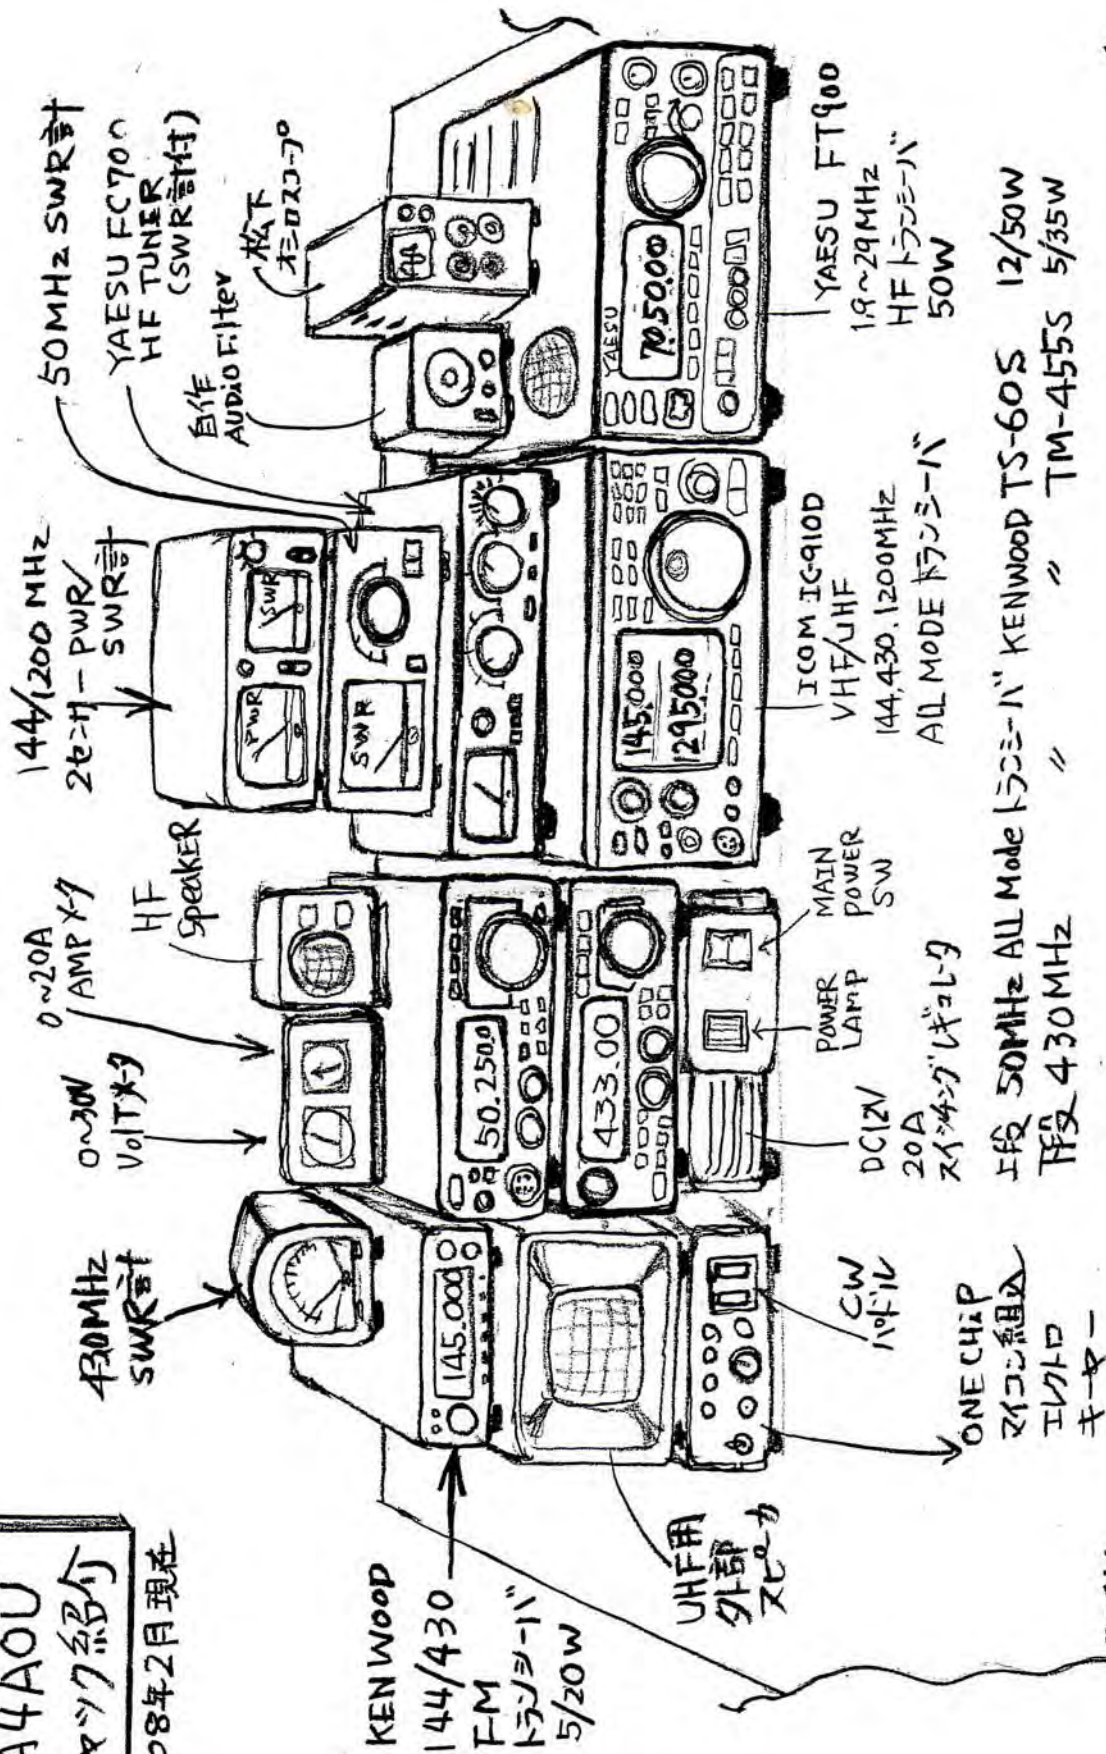 A4AOU
ャック紹介
08年2月現在
430MHz
SWR計
0~30V
VolTメータ
0~20A
AMPメータ
HF
SpeaKER
144/1200 MHz
2センサー PWR/
SWR計
50MHz SWR計
YAESU FC700
HF TUNER
(SWR計付)
自作
AUDiO Filter
松下
オシロスコープ
PWR
SWR
SWR
145.000
50.250.0
433.00
145.000
1295.000
YAESU
7.050.00
KENWOOD
144/430
FM
トランシーバ
5/20W
UHF用
外部
スピーカ
ONE CHiP
マイコン組込
エレクトロ
キーヤー
CW
パドル
DC12V
20A
スイッチングレギュレータ
POWER
LAMP
MAIN
POWER
SW
ICOM IC-910D
VHF/UHF
144,430.1200MHz
ALL MODE トランシーバ
YAESU FT900
1.9~29MHz
HFトランシーバ
50W
上段 50MHz ALL Mode トランシーバ KENWOOD TS-60S 12/50W
下段 430MHz 〃 〃 TM-455S 5/35W